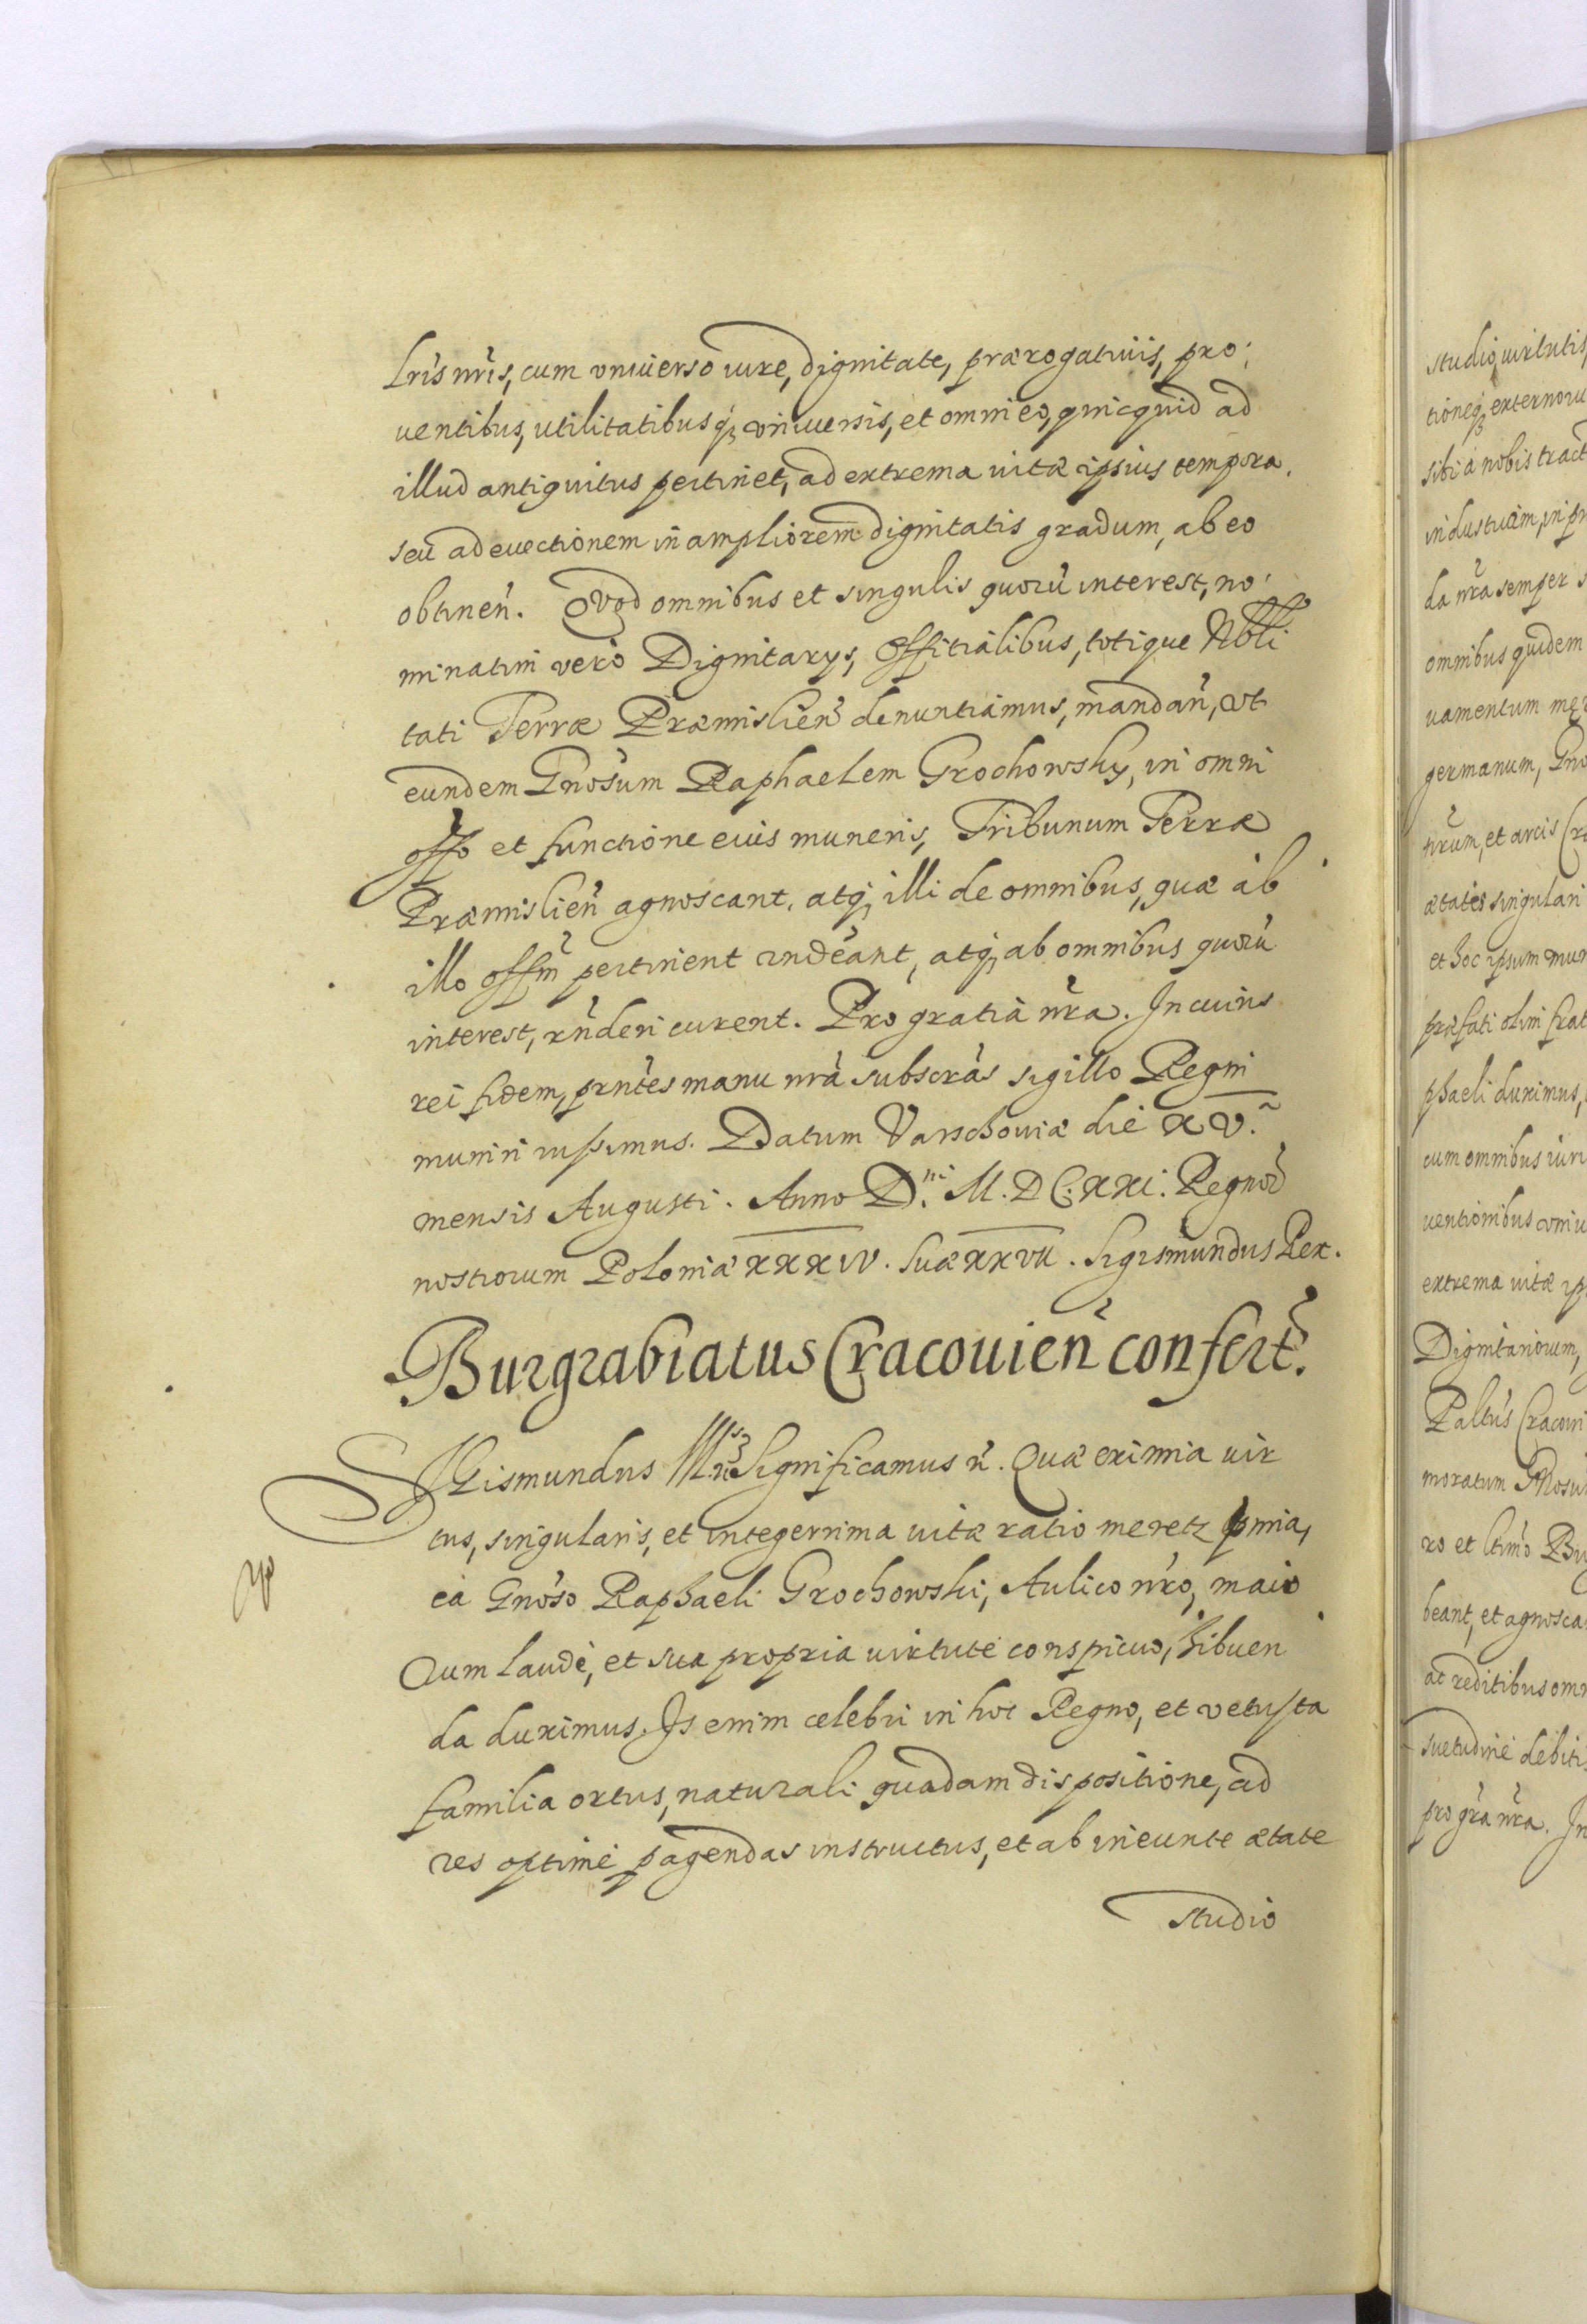 Lris nris, cum vniuerso iure, dignitate, prærogatiuis, pro:
uentibus, utilitatibusq3 vniuersis, et omni eo, quicquid ad
illud antiquitus pertinet, ad extrema uitæ ipsius tempora.
seu ad euectionem in ampliorem dignitatis gradum, ab eo
obtinen. Quod omnibus et singulis quorũ interest, no:
minatim vero Dignitarys, Offitialibus, totique Nobli
tati Terræ Præmislien denuntiamus, mandan, vt
eundem Gnosum Raphaelem Grochowsky, in omni
offo et functione euis muneris, Tribunum Terræ
Præmislien agnoscant, atq3 illi de omnibus, quæ ab
illo offm pertinent rndeant, atq3 ab omnibus quorũ
interest, rnderi curent. Pro gratia nra. In cuius
rei fidem, prntes manu nra subscras sigillo Regni
muniri iussimus. Datum Varschouiæ die XV.
mensis Augusti. Anno D.ni M.DC.XXI. Regnor
nostrorum Poloniæ XXXIV. Suæ XXVII. Sigismundus Rex.
Burgrabiatus Cracouien confert.
SIGismundus III. Significamus n. Quæ eximia uir
tus, singularis, et integerrima uitæ ratio meretz pmia,
ea Gnoso Raphaeli Grochowski, Aulico nro, maio
Qum laude, et sua propria uirtute conspicuo, tibuen
da duximus. Is enim celebri in hoc Regno, et vetusta
familia ortus, naturali quadam dispositione, ad
res optime pagendas instructus, et ab ineunte ætate
studio
studio, uirtutis,
tioneq3 externoru
sibi a nobis tract
industriam, in pr
da nra semper s
omnibus quidem
uamentum me
germanum, Gno
nrum, et arcis Cra
ætatis singulari
et hoc ipsum mun
præfati olim frat
phaeli duximus,
cum omnibus iuri
uentionibus vniu
extrema uitæ ip
Dignitariorum,
Paltus Cracoui
moratum Gnosu
ro et ltimo Bu
beant, et agnosca
ac reditibus omn
suetudine debitis
pro gra nra. In